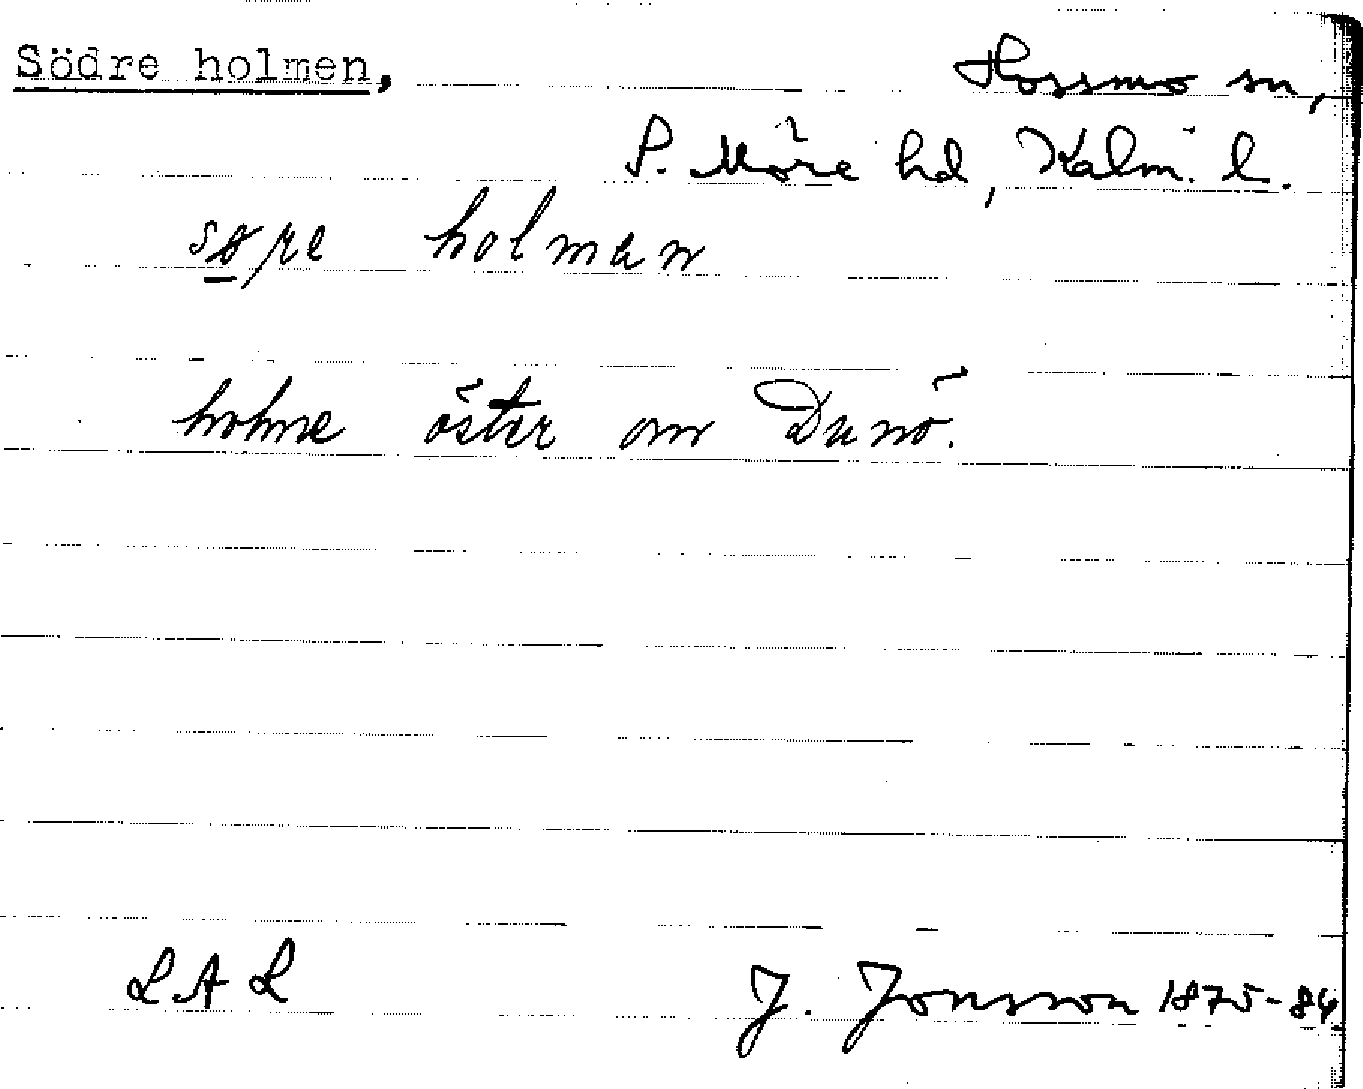 Södre holmen, Hossmo sn,
S. Möre hd, Kalm. l.
søre holman
holme öster om Dunö.
LAL J. Jonsson 1875-84